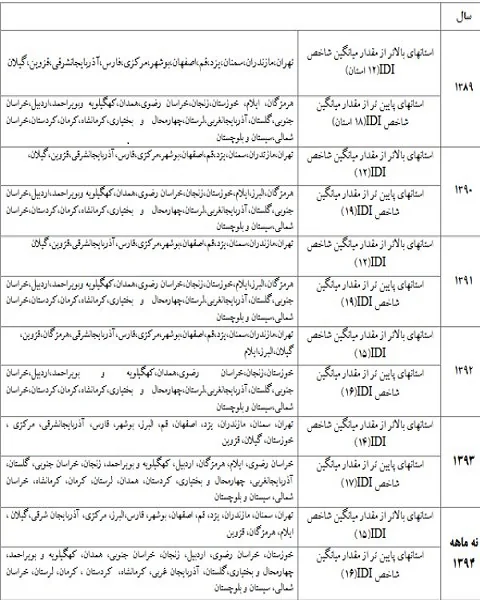 سال
استانهای بالاتر از مقدار میانگین شاخص
IDI(۱۲ استان)
تهران،مازندران،سمنان،یزد،قم،اصفهان،بوشهر،مرکزی،فارس،آذربایجانشرقی،قزوین،گیلان
۱۳۸۹
استانهای پایین تر از مقدار میانگین
شاخص IDI(۱۸ استان)
هرمزگان، ایلام، خوزستان،زنجان،خراسان رضوی،همدان،کهگیلویه وبویراحمد،اردبیل،خراسان
جنوبی،گلستان،آذربایجانغربی،لرستان،چهارمحال و بختیاری،کرمانشاه،کرمان،کردستان،خراسان
شمالی،سیستان و بلوچستان
استانهای بالاتر از مقدار میانگین شاخص
IDI(۱۲)
تهران،مازندران،سمنان،یزد،قم،اصفهان،بوشهر،مرکزی،فارس، آذربایجانشرقی،قزوین،گیلان،
۱۳۹۰
استانهای پایین تر از مقدار میانگین
شاخص IDI(۱۹)
هرمزگان،البرز،ایلام،خوزستان،زنجان،خراسان رضوی،همدان،کهگیلویه وبویراحمد،اردبیل،خراسان
جنوبی،گلستان،آذربایجانغربی،لرستان،چهارمحال و بختیاری،کرمانشاه،کرمان،کردستان،خراسان
شمالی،سیستان و بلوچستان
استانهای بالاتر از مقدار میانگین شاخص
IDI(۱۲)
تهران،مازندران،سمنان،یزد،قم،اصفهان،بوشهر،مرکزی،فارس،آذربایجانشرقی،قزوین،گیلان
۱۳۹۱
استانهای پایین تر از مقدار میانگین
شاخص IDI(۱۹)
هرمزگان،البرز،ایلام،خوزستان،زنجان،خراسان رضوی،همدان،کهگیلویه وبویراحمد،اردبیل،خراسان
جنوبی،گلستان،آذربایجانغربی،لرستان،چهارمحال و بختیاری،کرمانشاه،کرمان،کردستان،خراسان
شمالی،سیستان و بلوچستان
استانهای بالاتر از مقدار میانگین شاخص
IDI(۱۵)
تهران،مازندران،سمنان،یزد،قم،اصفهان،بوشهر،مرکزی،فارس،آذربایجانشرقی،هرمزگان،قزوین،
گیلان،البرز،ایلام
۱۳۹۲
استانهای پایین تر از مقدار میانگین
شاخص IDI(۱۶)
خوزستان،زنجان،خراسان رضوی،همدان،کهگیلویه و بویراحمد،اردبیل،خراسان
جنوبی،گلستان،آذربایجانغربی،لرستان،چهارمحال و بختیاری،کرمانشاه،کرمان،کردستان،خراسان
شمالی،سیستان و بلوچستان
استانهای بالاتر از مقدار میانگین شاخص
IDI(۱۴)
تهران، سمنان، مازندران، یزد، اصفهان، قم، البرز، بوشهر، فارس، آذربایجانشرقی، مرکزی ،
خوزستان، گیلان، قزوین
۱۳۹۳
استانهای پایین تر از مقدار میانگین
شاخص IDI(۱۷)
خراسان رضوی، ایلام، هرمزگان، اردبیل، کهگیلویه و بویراحمد، زنجان، خراسان جنوبی، گلستان،
آذربایجانغربی، چهارمحال و بختیاری، کردستان، همدان، لرستان، کرمان، کرمانشاه، خراسان
شمالی، سیستان و بلوچستان
استانهای بالاتر از مقدار میانگین شاخص
IDI(۱۵)
تهران، سمنان، مازندران، یزد، قم، اصفهان، بوشهر، فارس،البرز، مرکزی، آذربایجان شرقی،گیلان ،
ایلام ،هرمزگان، قزوین
نه ماهه
۱۳۹۴
استانهای پایین تر از مقدار میانگین
شاخص IDI(۱۶)
خوزستان، خراسان رضوی، اردبیل، زنجان، خراسان جنوبی، همدان، کهگیلویه و بویراحمد،
چهارمحال و بختیاری،گلستان، آذربایجان غربی، کرمانشاه، کردستان ، کرمان، لرستان، خراسان
شمالی، سیستان و بلوچستان